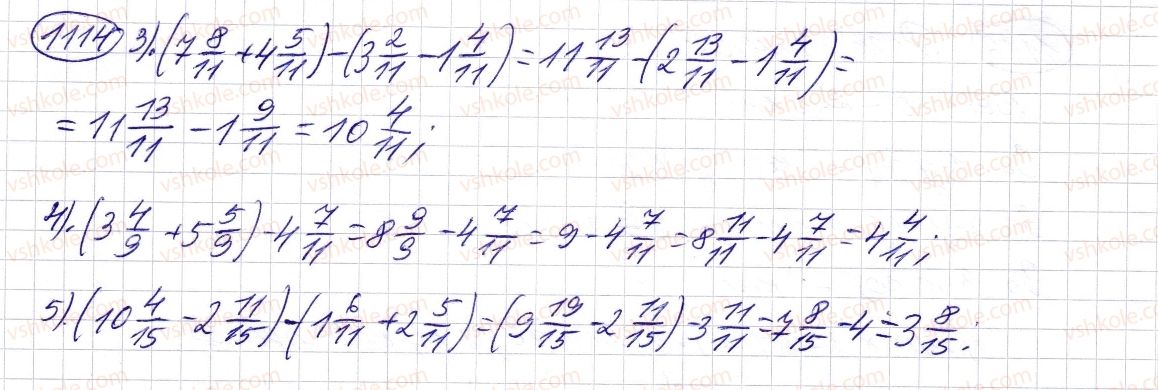 1114 3). (7 8/11 + 4 5/11) - (3 2/11 - 1 4/11) = 11 13/11 - (2 13/11 - 1 4/11) =
= 11 13/11 - 1 9/11 = 10 4/11;
4). (3 4/9 + 5 5/9) - 4 7/11 = 8 9/9 - 4 7/11 = 9 - 4 7/11 = 8 11/11 - 4 7/11 = 4 4/11;
5). (10 4/15 - 2 11/15) - (1 6/11 + 2 5/11) = (9 19/15 - 2 11/15) - 3 11/11 = 7 8/15 - 4 = 3 8/15;